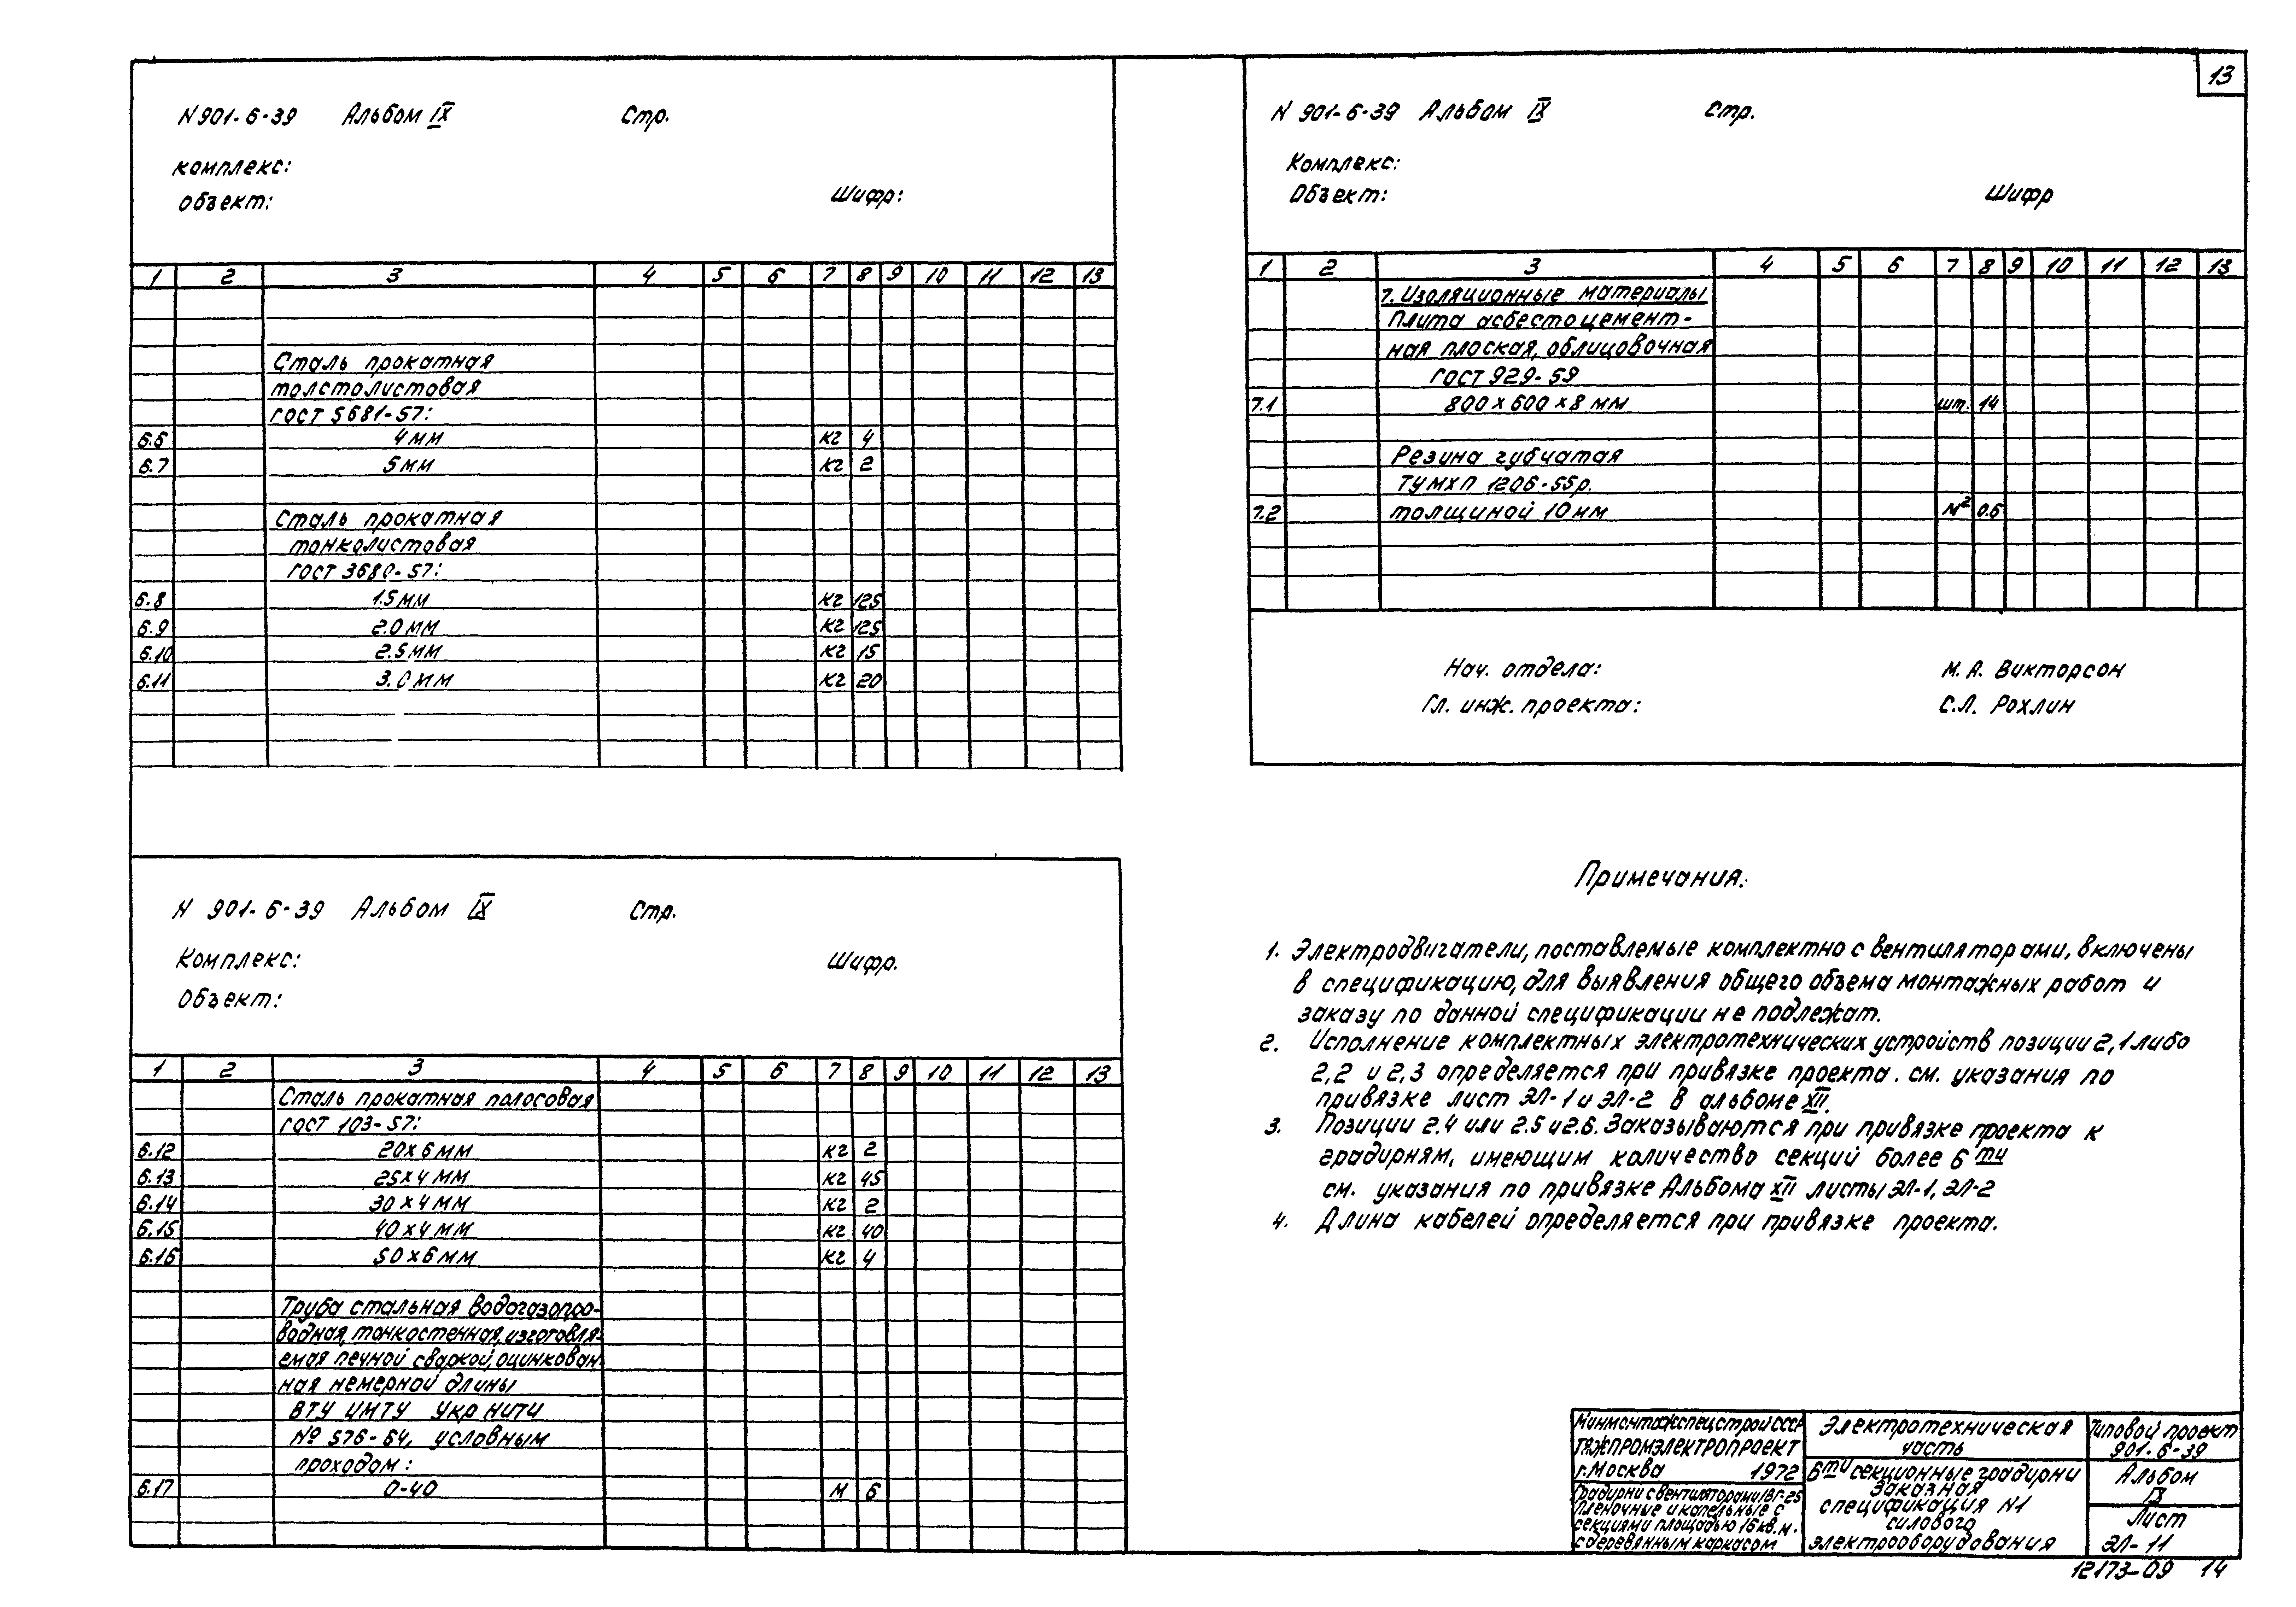 13
N 901-6-39 Альбом IX Стр.
Комплекс:
Объект: Шифр:
1 2 3 4 5 6 7 8 9 10 11 12 13
Сталь прокатная
толстолистовая
ГОСТ 5681-57:
6.6 4 мм кг 4
6.7 5 мм кг 2
Сталь прокатная
тонколистовая
ГОСТ 3680-57:
6.8 1.5 мм кг 125
6.9 2.0 мм кг 125
6.10 2.5 мм кг 15
6.11 3.0 мм кг 20
N 901-6-39 Альбом IX Стр.
Комплекс: Шифр.
Объект:
1 2 3 4 5 6 7 8 9 10 11 12 13
Сталь прокатная полосовая
ГОСТ 103-57:
6.12 20х6 мм кг 2
6.13 25х4 мм кг 45
6.14 30х4 мм кг 2
6.15 40х4 мм кг 40
6.16 50х6 мм кг 4
Труба стальная водогазопро-
водная, тонкостенная, изготовля-
емая печной сваркой, оцинкован-
ная немерной длины
ВТУ ЦМТУ Укр НИТИ
№ 576-64, условным
проходом:
6.17 0-40 м 6
N 901-6-39 Альбом IX Стр.
Комплекс:
Объект: Шифр
1 2 3 4 5 6 7 8 9 10 11 12 13
7. Изоляционные материалы
Плита асбестоцемент-
ная плоская, облицовочная
ГОСТ 929-59
7.1 800х600х8 мм шт. 14
Резина губчатая
ТУМХП 1206-55р.
7.2 толщиной 10 мм м² 0.6
Нач. отдела: М. А. Викторсон
Гл. инж. проекта: С.Л. Рохлин
Примечания:
1. Электродвигатели, поставлемые комплектно с вентиляторами, включены
в спецификацию, для выявления общего объема монтажных работ и
заказу по данной спецификации не подлежат.
2. Исполнение комплектных электротехнических устройств позиции 2,1 либо
2,2 и 2,3 определяется при привязке проекта. см. указания по
привязке лист ЭЛ-1 и ЭЛ-2 в альбоме XII.
3. Позиции 2.4 или 2.5 и 2.6. Заказываются при привязке проекта к
градирням, имеющим количество секций более 6ти
см. указания по привязке Альбома XII листы ЭЛ-1, ЭЛ-2
4. Длина кабелей определяется при привязке проекта.
Минмонтажспецстрой СССР
ТЯЖПРОМЭЛЕКТРОПРОЕКТ
г. Москва 1972
Градирни с вентиляторами 1ВГ-25
пленочные и капельные с
секциями площадью 16 кв. м.
с деревянным каркасом
Электротехническая
часть
6ти секционные градирни
Заказная
спецификация N1
силового
электрооборудования
Типовой проект
901-6-39
Альбом
IX
Лист
ЭЛ-11
12173-09 14